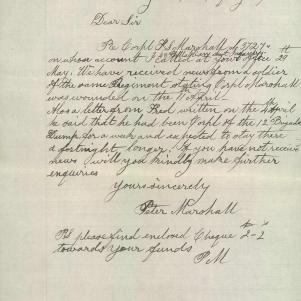 Dear Sir
Re Corpl R S Marshall
on whose account I called at your Office 29th
May. We have received news from a soldier
of the same Regiment stating Corpl Marshall
was wounded on the 11th April
Also a letter from Red, written on the April
he said that he had been Corpl of the 12th Brigade
Dump for a week and expected to stay there
a fortnight longer. If you have not receive
news, will you kindly make further
enquiries
Yours sincerely
Peter Marshall
PS please find enclosed Cheque 2-2
towards your funds
P M